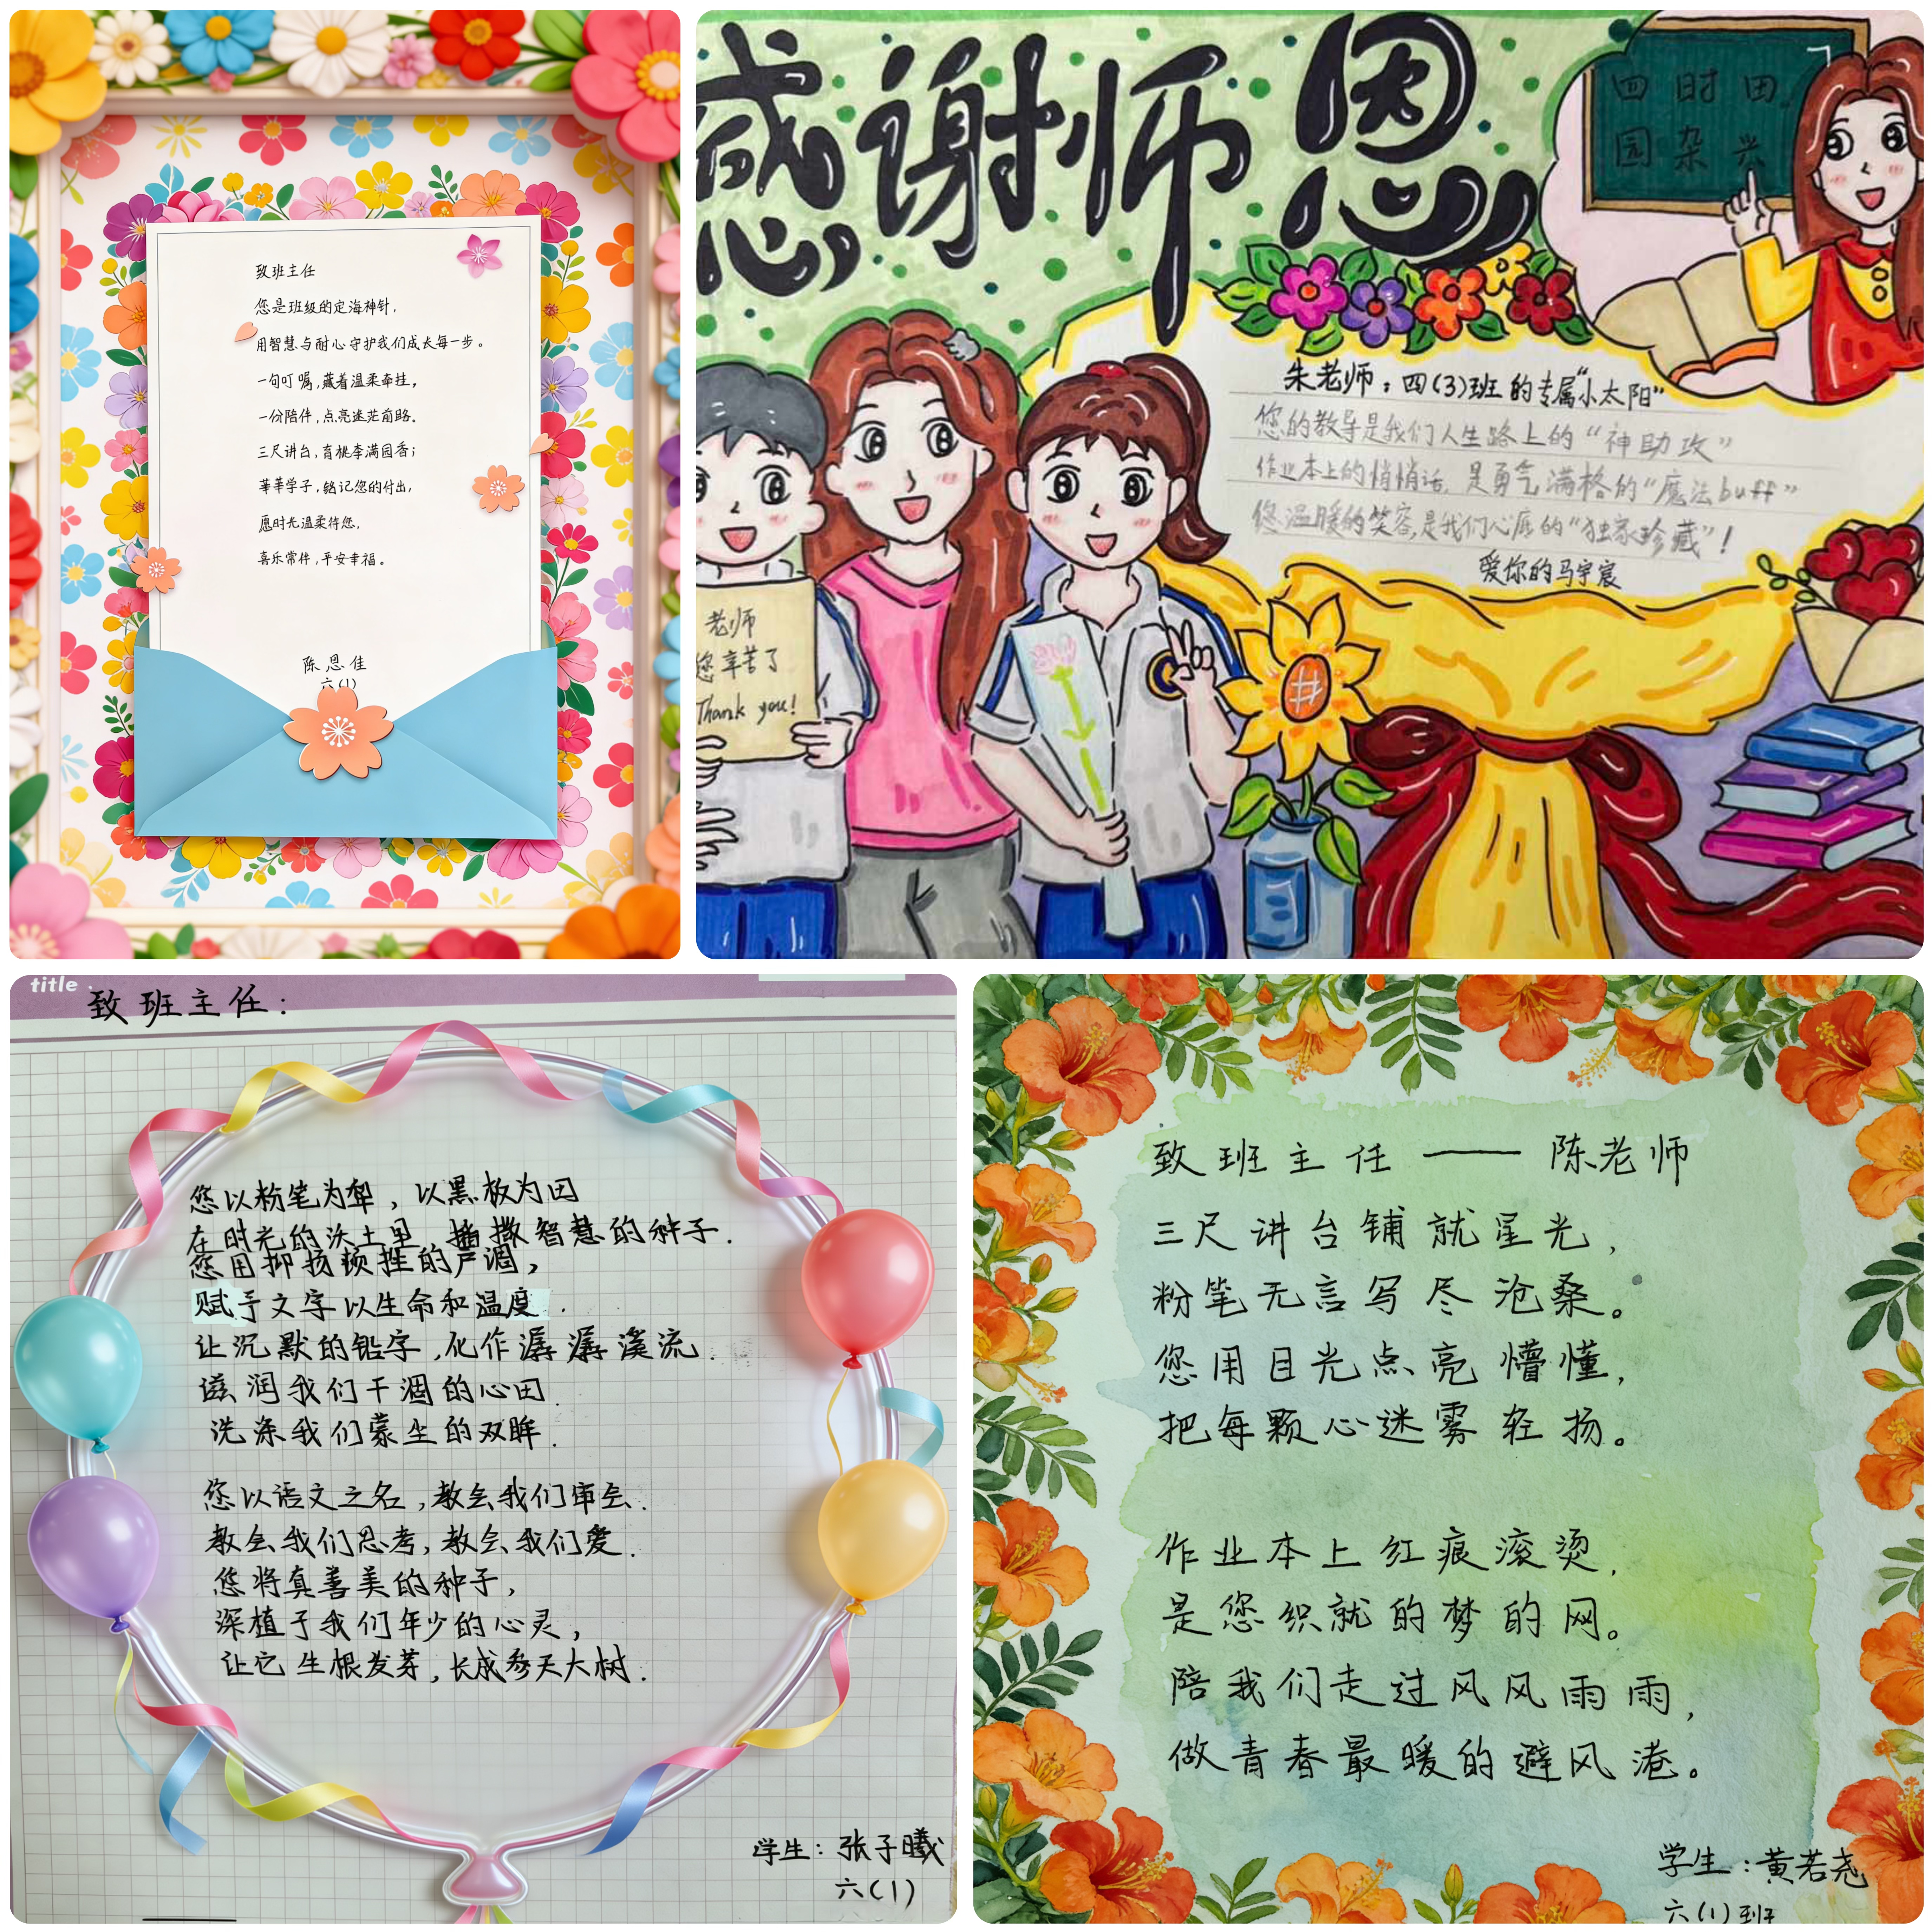 致班主任
您是班级的定海神针,
用智慧与耐心守护我们成长每一步。
一句叮嘱,藏着温柔牵挂,
一份陪伴,点亮迷茫前路。
三尺讲台,育桃李满园香;
莘莘学子,铭记您的付出,
愿时光温柔待您,
喜乐常伴,平安幸福。
陈思佳
六(1)
感谢师恩
四时田
园杂兴
朱老师:四(3)班的专属“小太阳”
您的教导是我们人生路上的“神助攻”
作业本上的悄悄话,是勇气满格的“魔法buff”
您温暖的笑容,是我们心底的“独家珍藏”!
爱你的马宇宸
老师
您辛苦了
Thank you!
title
致班主任:
您以粉笔为犁,以黑板为田
在时光的沃土里,播撒智慧的种子.
您用抑扬顿挫的声调,
赋予文字以生命和温度.
让沉默的铅字,化作潺潺溪流.
滋润我们干涸的心田.
洗涤我们蒙尘的双眸.
您以语文之名,教会我们审会.
教会我们思考,教会我们爱.
您将真善美的种子,
深植于我们年少的心灵,
让它生根发芽,长成参天大树.
学生:张子曦
六(1)
致班主任——陈老师
三尺讲台铺就星光,
粉笔无言写尽沧桑。
您用目光点亮懵懂,
把每颗心迷雾轻扬。
作业本上红痕滚烫,
是您织就的梦的网。
陪我们走过风风雨雨,
做青春最暖的避风港。
学生:黄若尧
六(1)班